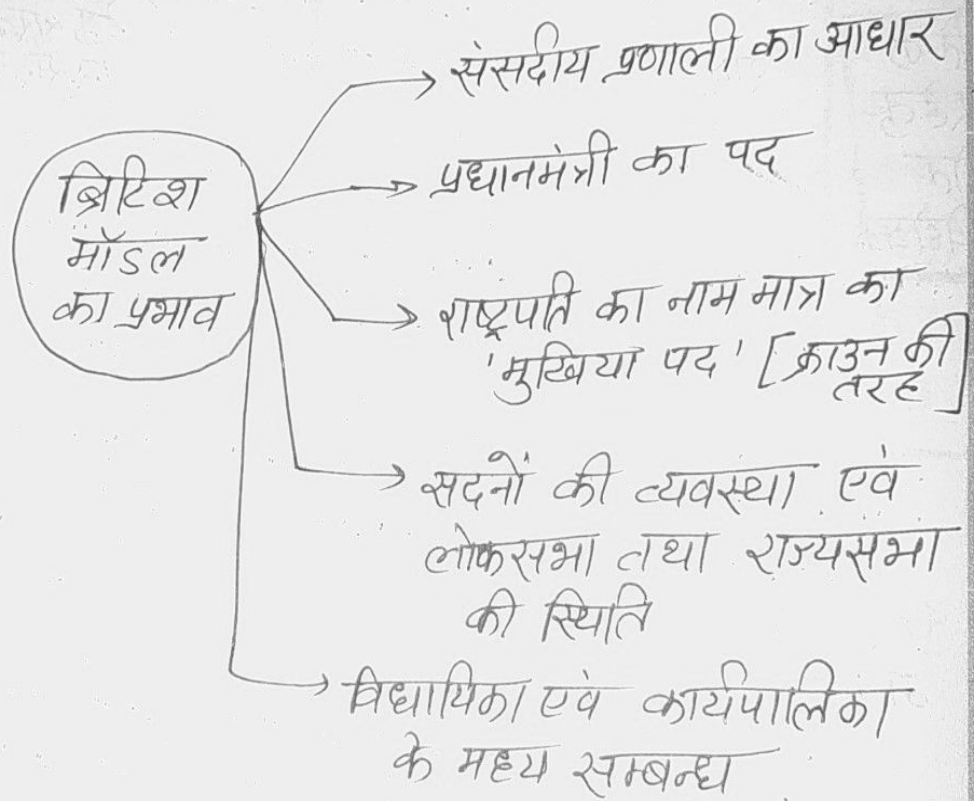 ब्रिटिश
मॉडल
का प्रभाव
संसदीय प्रणाली का आधार
प्रधानमंत्री का पद
राष्ट्रपति का नाम मात्र का
'मुखिया पद' [क्राउन की
तरह]
सदनों की व्यवस्था एवं
लोकसभा तथा राज्यसभा
की स्थिति
विधायिका एवं कार्यपालिका
के मध्य सम्बन्ध